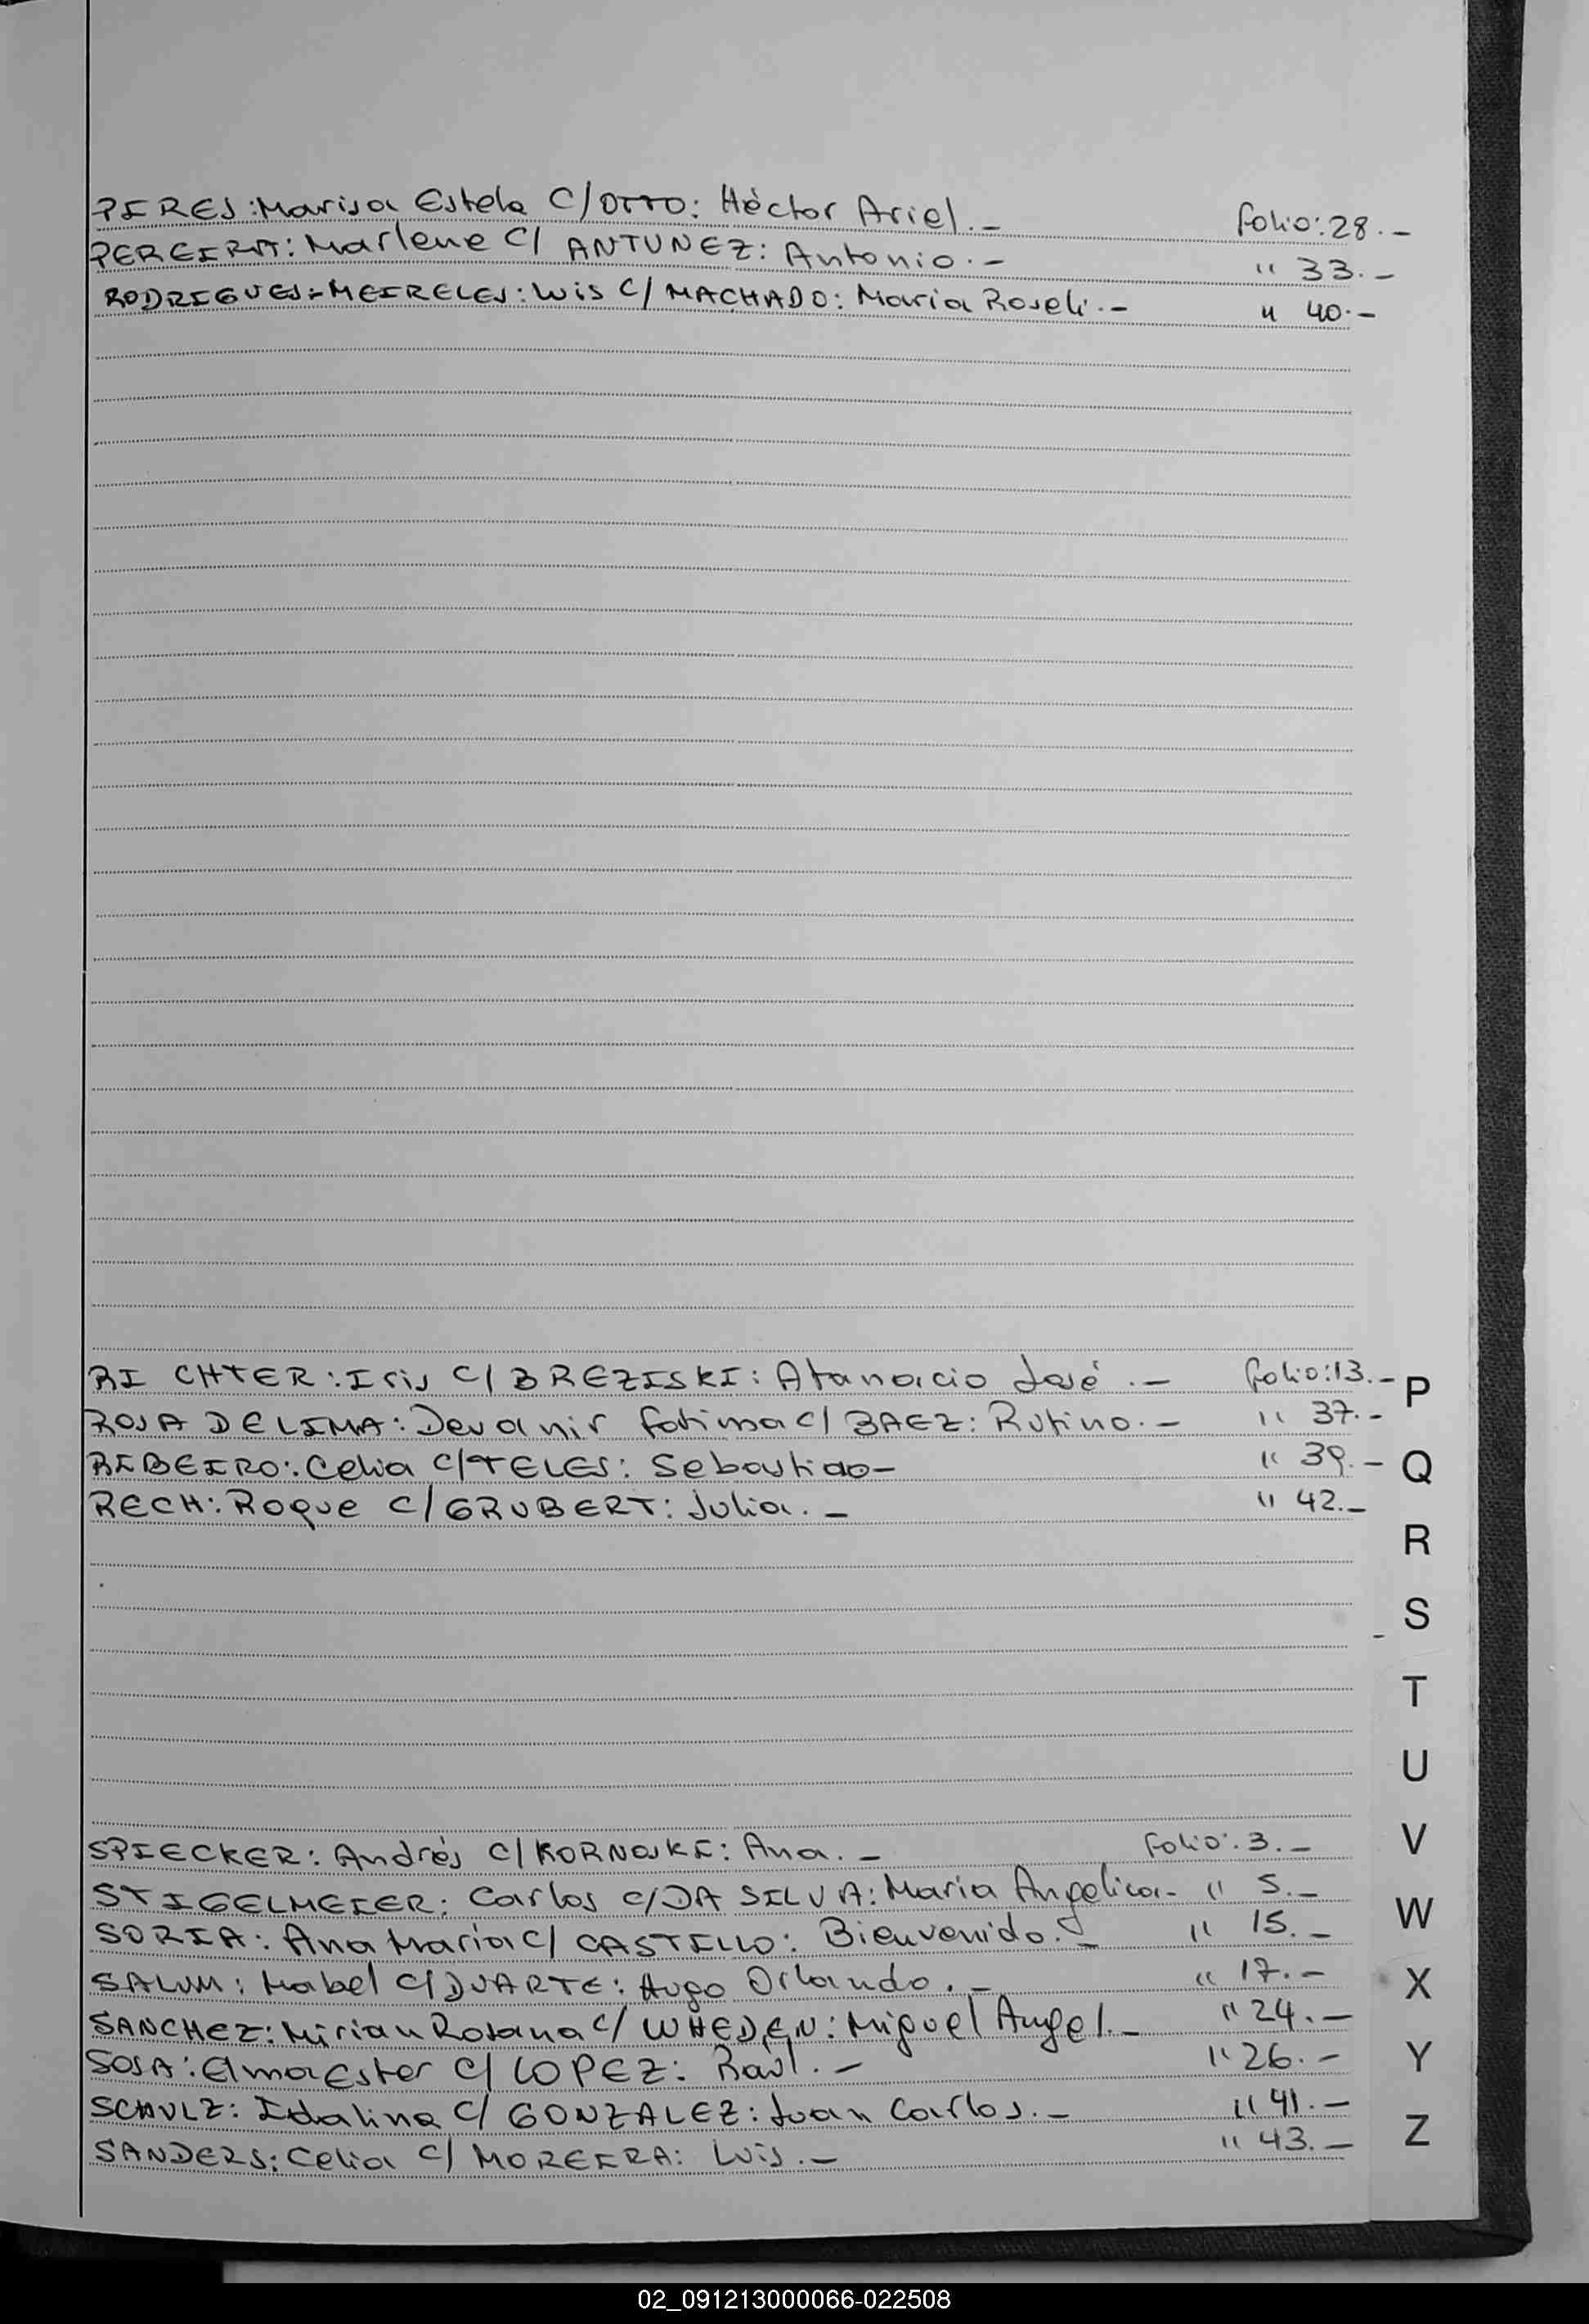 PIRES: Marisa Estela C/ OTTO: Héctor Ariel.- folio: 28.-
PEREIRA: Marlene C/ ANTUNEZ: Antonio.- " 33.-
RODRIGUES-MEIRELES: Luis C/ MACHADO: Maria Roseli.- " 40.-
RICHTER: Iris C/ BREZISKI: Atanacio José.- folio: 13.-
ROSA DE LIMA: Devanir Fatima C/ BAEZ: Rufino.- " 37.-
RIBEIRO: Celia C/ TELES: Sebastiao- " 39.-
RECH: Roque C/ GRUBERT: Julia.- " 42.-
SPIECKER: Andrés C/ KORNOSKI: Ana.- Folio: 3.-
STIGELMEIER: Carlos C/ DA SILVA: Maria Angelica- " 5.-
SORIA: Ana Maria C/ CASTILLO: Bienvenido.- " 15.-
SALUM: Mabel C/ DUARTE: Hugo Orlando.- " 17.-
SANCHEZ: Mirian Rosana C/ WHEDEN: Miguel Angel.- " 24.-
SOSA: Elma Ester C/ LOPEZ: Raúl.- " 26.-
SCHULZ: Idalina C/ GONZALEZ: Juan Carlos.- " 41.-
SANDERS: Celia C/ MOREIRA: Luis.- " 43.-
P
Q
R
S
T
U
V
W
X
Y
Z
02_091213000066-022508